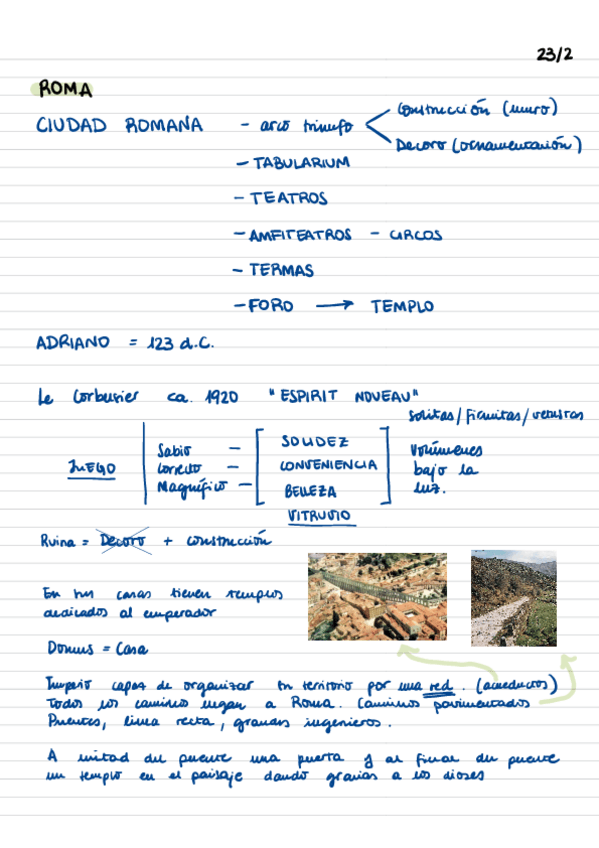 23/2
ROMA
CIUDAD ROMANA - arco triunfo
Construcción (muro)
Decoro (ornamentación)
- TABULARIUM
- TEATROS
- AMFITEATROS - CIRCOS
- TERMAS
- FORO → TEMPLO
ADRIANO = 123 d.C.
Le Corbusier ca. 1920 "ESPIRIT NOVEAU"
solitas/firmitas/venustas
JUEGO
Sabio -
Correcto -
Magnífico -
SOLIDEZ
CONVENIENCIA
BELLEZA
VITRUVIO
Volúmenes
bajo la
luz.
Ruina = Decoro + construcción
En sus casas tienen templos
dedicados al emperador
Domus = Casa
Imperio capaz de organizar su territorio por una red. (acueductos)
Todos los caminos llegan a Roma. Caminos pavimentados
Puentes, linea recta, grandes ingenieros.
A mitad del puente una puerta y al final del puente
un templo en el paisaje dando gracias a los dioses